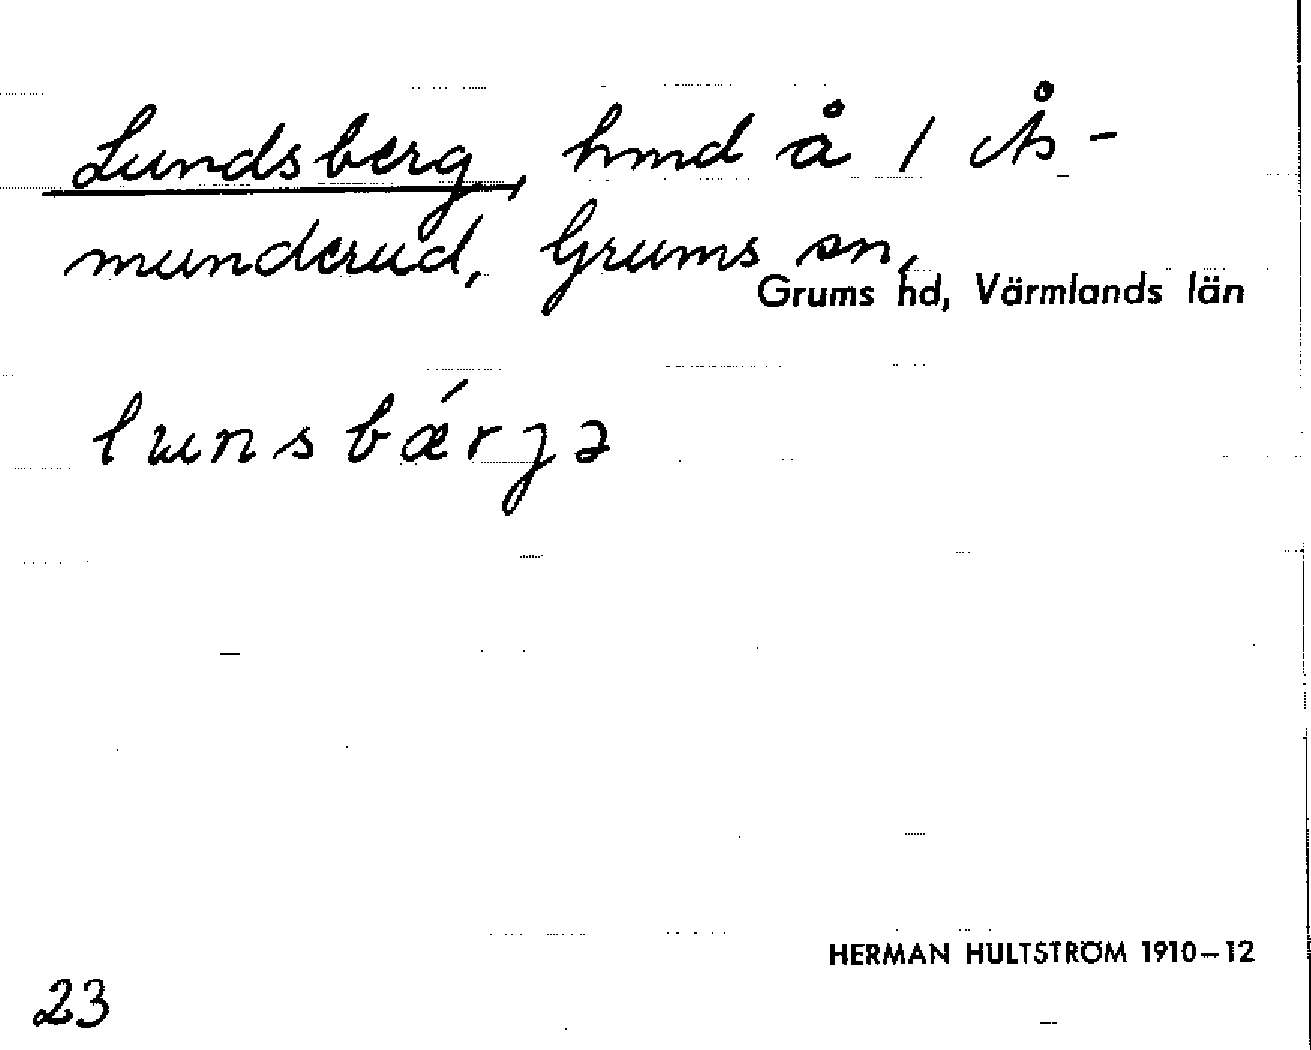 Lundsberg, hmd å 1 Ås-
munderud, Grums sn,
Grums hd, Värmlands län
lunsbǽrjə
HERMAN HULTSTRÖM 1910–12
23